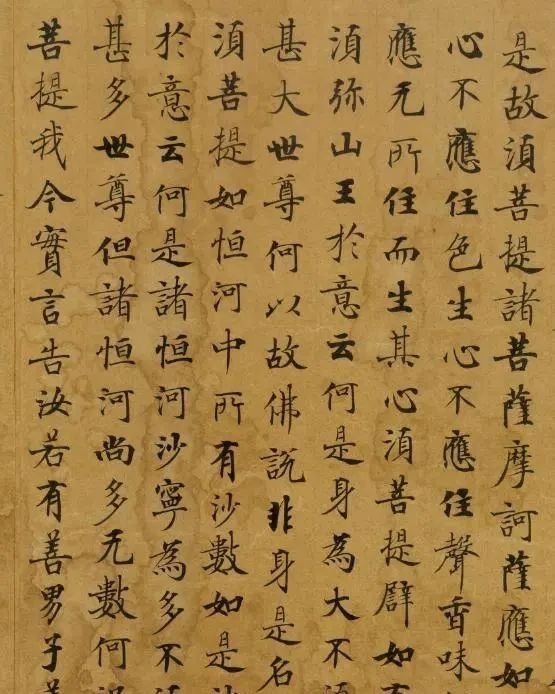 是故須菩提諸菩薩摩訶薩應如
心不應住色生心不應住聲香味
應无所住而生其心須菩提辟如
須弥山王於意云何是身為大不
甚大世尊何以故佛說非身是名
須菩提如恒河中所有沙數如是
於意云何是諸恒河沙寧為多不
甚多世尊但諸恒河尚多无數何
菩提我今實言告汝若有善男子